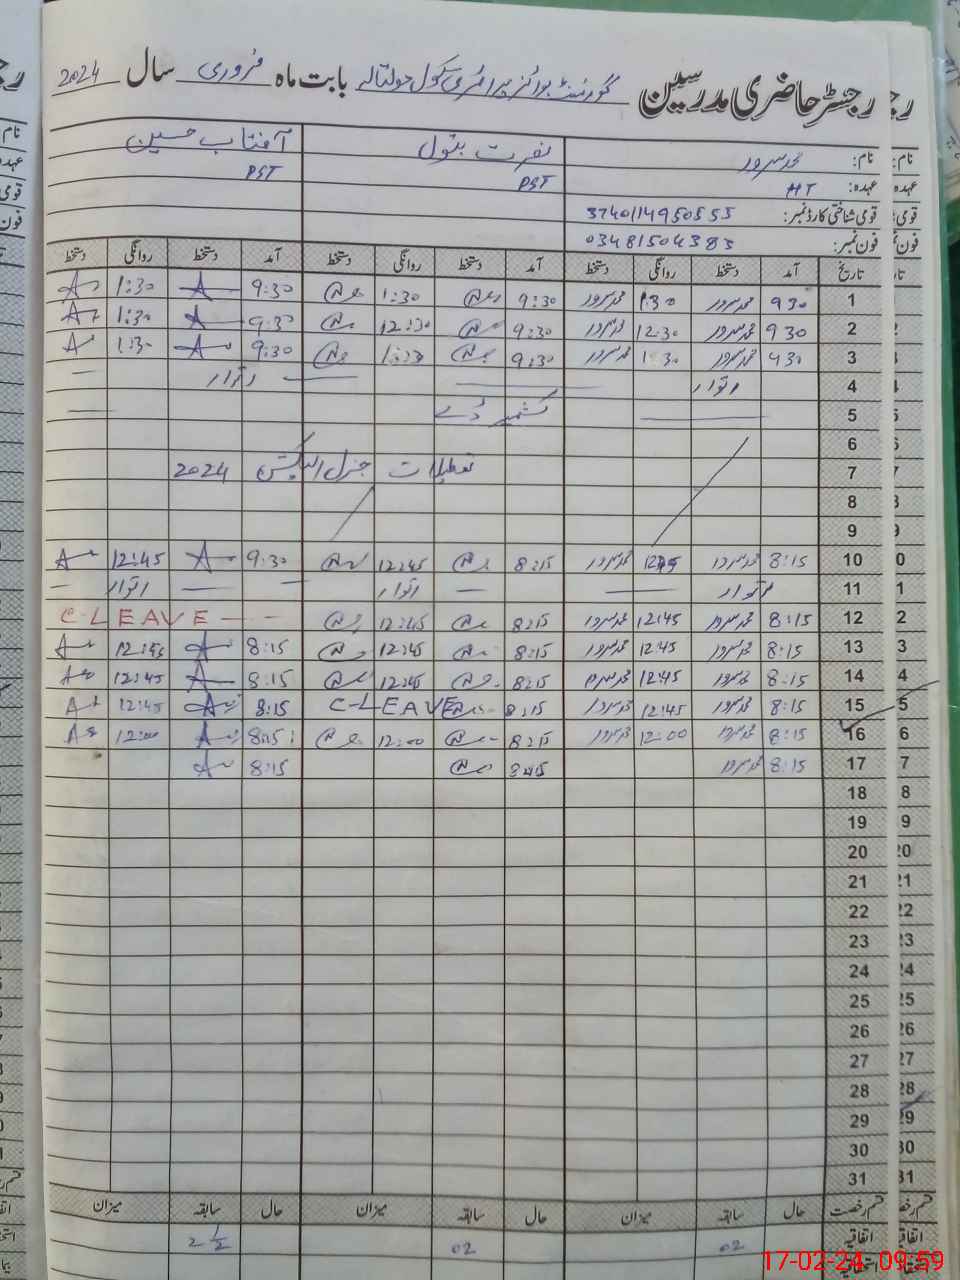 رجسٹر حاضری مدرسین گورنمنٹ بوائز پرائمری سکول بابت ماہ فروری سال 2024
نام: محمد سرور نصرت بتول آفتاب حسین
عہدہ: HT PST PST
قومی شناختی کارڈ نمبر: 3740114950553
فون نمبر: 03481504383
تاریخ آمد دستخط روانگی دستخط آمد دستخط روانگی دستخط آمد دستخط روانگی دستخط
1 9 30 محمد سرور 1:30 محمد سرور 9:30 1:30 9:30 1:30
2 9 30 محمد سرور 12:30 محمد سرور 9:30 12:30 9:30 1:30
3 9 30 محمد سرور 1:30 محمد سرور 9:30 1:30 9:30 1:30
4 اتوار اتوار
5 کشمیر ڈے
6
7 تعطیلات جنرل الیکشن 2024
8
9
10 8:15 محمد سرور 1245 محمد سرور 8:15 12:45 9:30 12:45
11 اتوار اتوار اتوار
12 8:15 محمد سرور 12:45 محمد سرور 8:15 12:45 C-LEAVE
13 8:15 محمد سرور 12:45 محمد سرور 8:15 12:45 8:15 12:45
14 8:15 محمد سرور 12:45 محمد سرور 8:15 12:45 8:15 12:45
15 8:15 محمد سرور 12:45 محمد سرور 8:15 C-LEAVE 8:15 12:45
16 8:15 محمد سرور 12:00 محمد سرور 8:15 12:00 8:15 12:00
17 8:15 محمد سرور 8:15 8:15
18
19
20
21
22
23
24
25
26
27
28
29
30
31
قسم رخصت حال سابقہ میزان حال سابقہ میزان حال سابقہ میزان
اتفاقیہ 02 02 2 1/2
استحقاقیہ
17-02-24 09:59